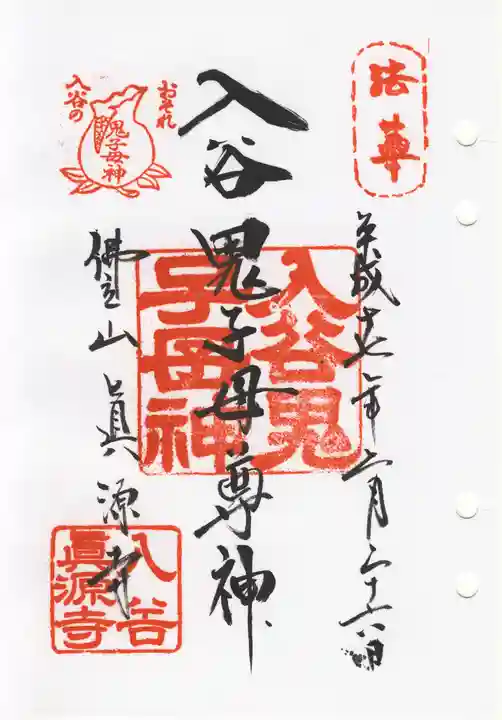 法華
平成十七年二月二十六日
入谷鬼子母尊神
入谷鬼
子母神
おそれ
入谷の
鬼子母神
佛立山眞源寺
入谷
眞源寺